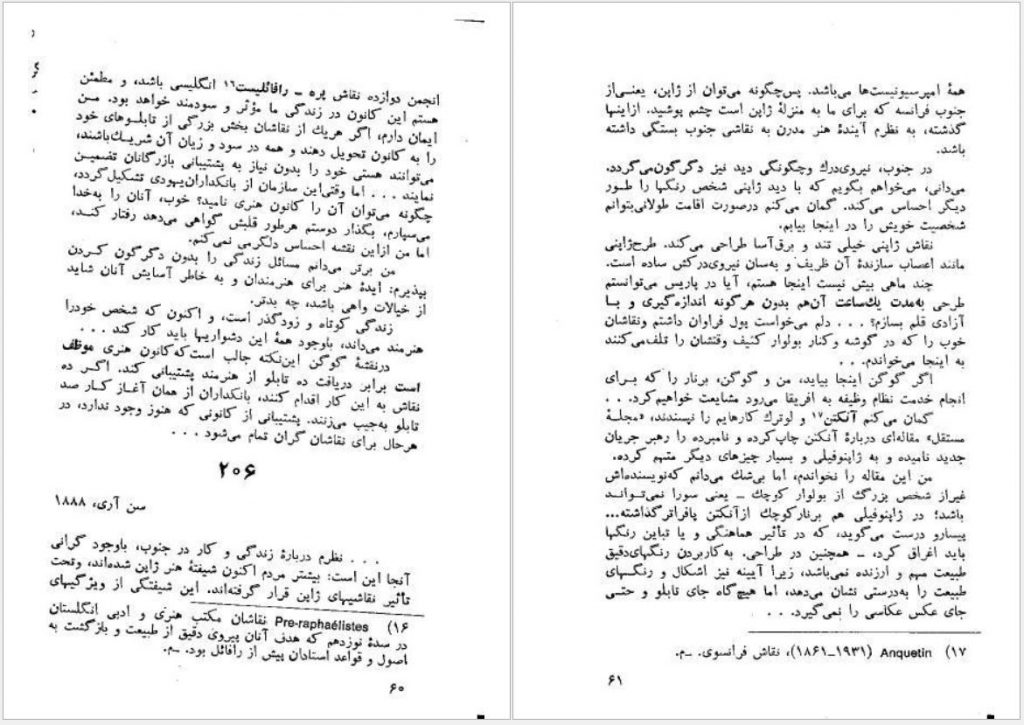 انجمن دوازده نقاش پره ـ رافائلیست۱۶ انگلیسی باشد، و مطمئن
هستم این کانون در زندگی ما مؤثر و سودمند خواهد بود. من
ایمان دارم، اگر هریك از نقاشان بخش بزرگی از تابلوهای خود
را به کانون تحویل دهند و همه در سود و زیان آن شریك‌باشند،
می‌توانند هستی خود را بدون نیاز به پشتیبانی بازرگانان تضمین
نمایند . . . اما وقتی‌این سازمان از بانکداران‌یهودی تشکیل‌گردد،
چگونه می‌توان آن را کانون هنری نامید؟ خوب، آنان را به‌خدا
می‌سپارم، بگذار دوستم هرطور قلبش گواهی می‌دهد رفتار کند،
اما من ازاین نقشه احساس دلگرمی نمی‌کنم.
من برتر می‌دانم مسائل زندگی را بدون دگرگون کردن
بپذیرم: ایدهٔ هنر برای هنرمندان و به خاطر آسایش آنان شاید
از خیالات واهی باشد، چه بدتر.
زندگی کوتاه و زودگذر است، و اکنون که شخص خودرا
هنرمند می‌داند، باوجود همهٔ این دشواریها باید کار کند . . .
درنقشهٔ گوگن این‌نکته جالب است‌که‌کانون هنری موظف
است برابر دریافت ده تابلو از هنرمند پشتیبانی کند. اگر ده
نقاش به این کار اقدام کنند، بانکداران از همان آغاز کار صد
تابلو به‌جیب می‌زنند. پشتیبانی از کانونی که هنوز وجود ندارد، در
هرحال برای نقاشان گران تمام می‌شود . . .
۲۰۶
سن آری، ۱۸۸۸
. . . نظرم دربارهٔ زندگی و کار در جنوب، باوجود گرانی
آنجا این است: بیشتر مردم اکنون شیفتهٔ هنر ژاپن شده‌اند، وتحت
تأثیر نقاشیهای ژاپن قرار گرفته‌اند. این شیفتگی از ویژگیهای
۱۶) Pre-raphaélistes نقاشان مکتب هنری و ادبی انگلستان
در سدهٔ نوزدهم که هدف آنان پیروی دقیق از طبیعت و بازگشت به
اصول و قواعد استادان پیش از رافائل بود. ــم.
۶۰
همهٔ امپرسیونیست‌ها می‌باشد. پس‌چگونه می‌توان از ژاپن، یعنی‌از
جنوب فرانسه که برای ما به منزلهٔ ژاپن است چشم پوشید. ازاینها
گذشته، به نظرم آیندهٔ هنر مدرن به نقاشی جنوب بستگی داشته
باشد.
در جنوب، نیروی‌درك وچگونگی دید نیز دگرگون‌می‌گردد.
می‌دانی، می‌خواهم بگویم که با دید ژاپنی شخص رنگها را طور
دیگر احساس می‌کند. گمان می‌کنم درصورت اقامت طولانی‌بتوانم
شخصیت خویش را در اینجا بیابم.
نقاش ژاپنی خیلی تند و برق‌آسا طراحی می‌کند. طرح‌ژاپنی
مانند اعصاب سازندهٔ آن ظریف و به‌سان نیروی‌درکش ساده است.
چند ماهی بیش نیست اینجا هستم، آیا در پاریس می‌توانستم
طرحی به‌مدت یك‌ساعت آن‌هم بدون هرگونه اندازه‌گیری و با
آزادی قلم بسازم؟ . . . دلم می‌خواست پول فراوان داشتم ونقاشان
خوب را که در گوشه وکنار بولوار کثیف وقتشان را تلف‌می‌کنند
به اینجا می‌خواندم. . .
اگر گوگن اینجا بیاید، من و گوگن، برنار را که برای
انجام خدمت نظام وظیفه به افریقا می‌رود مشایعت خواهیم‌کرد. . .
گمان می‌کنم آنکتن۱۷ و لوترك کارهایم را نپسندند، «مجلهٔ
مستقل» مقاله‌ای دربارهٔ آنکتن چاپ‌کرده و نامبرده را رهبر جریان
جدید نامیده و به ژاپنوفیلی و بسیار چیزهای دیگر متهم کرده.
من این مقاله را نخواندم، اما بی‌شك می‌دانم که‌نویسنده‌اش
غیراز شخص بزرگ از بولوار کوچك ــ یعنی سورا نمی‌تواند
باشد؛ در ژاپنوفیلی هم برنارکوچك ازآنکتن پافراترگذاشته...
پیسارو درست می‌گوید، که در تأثیر هماهنگی و یا تباین رنگها
باید اغراق کرد، ــ همچنین در طراحی. به‌کاربردن رنگهای‌دقیق
طبیعت مهم و ارزنده نمی‌باشد، زیرا آیینه نیز اشکال و رنگهای
طبیعت را به‌درستی نشان می‌دهد، اما هیچ‌گاه جای تابلو و حتی
جای عکس عکاسی را نمی‌گیرد. . .
۱۷) Anquetin (۱۹۳۱ـ۱۸۶۱)، نقاش فرانسوی. ــم.
۶۱